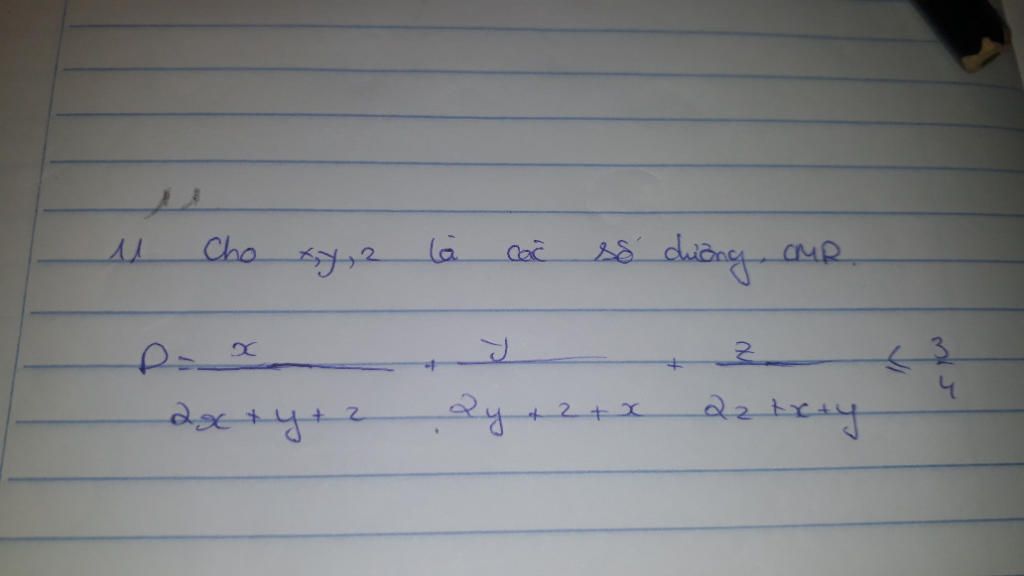 11 Cho x,y,z là các số dương. CMR.
P = x/(2x+y+z) + y/(2y+z+x) + z/(2z+x+y) ≤ 3/4